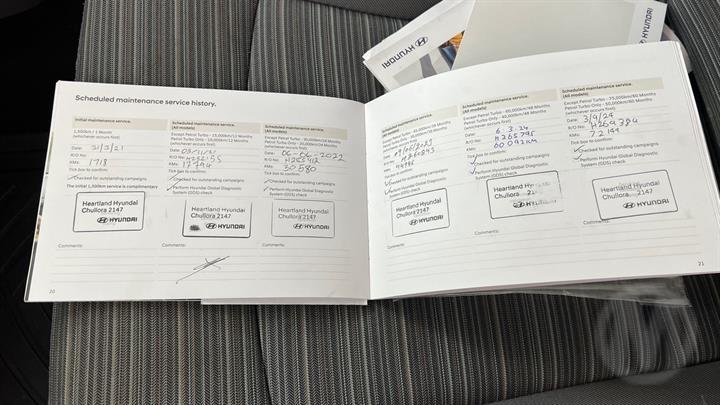 Scheduled maintenance service history.
Initial maintenance service.
1,500km / 1 Month
(whichever occurs first)
Date: 31/3/21
R/O No:
KMs: 1718
Tick box to confirm:
Checked for outstanding campaigns
The initial 1,500km service is complimentary
Heartland Hyundai
Chullora 2147
HYUNDAI
Comments:
20
Scheduled maintenance service.
(All models)
Except Petrol Turbo - 15,000km/12 Months
Petrol Turbo Only - 10,000km/12 Months
(whichever occurs first)
Date:
R/O No:
KMs:
Tick box to confirm:
Checked for outstanding campaigns
Perform Hyundai Global Diagnostic
System (GDS) check
Heartland Hyundai
Chullora 2147
HYUNDAI
Comments:
Scheduled maintenance service.
(All models)
Except Petrol Turbo - 30,000km/24 Months
Petrol Turbo Only - 20,000km/24 Months
(whichever occurs first)
Date: 06-06-2022
R/O No:
KMs: 30580
Tick box to confirm:
Checked for outstanding campaigns
Perform Hyundai Global Diagnostic
System (GDS) check
Heartland Hyundai
Chullora 2147
HYUNDAI
Comments:
Scheduled maintenance service.
(All models)
Except Petrol Turbo - 45,000km/36 Months
(whichever occurs first)
Date:
R/O No:
KMs:
Tick box to confirm:
Checked for outstanding campaigns
Perform Hyundai Global Diagnostic
System (GDS) check
Heartland Hyundai
Chullora 2147
HYUNDAI
Comments:
Scheduled maintenance service.
(All models)
Except Petrol Turbo - 60,000km/48 Months
Petrol Turbo Only - 40,000km/48 Months
(whichever occurs first)
Date: 6.3.24
R/O No: H265795
KMs: 60092KM
Tick box to confirm:
Checked for outstanding campaigns
Perform Hyundai Global Diagnostic
System (GDS) check
Heartland
Chullora
HYUNDAI
Comments:
Scheduled maintenance service.
(All models)
Except Petrol Turbo - 75,000km/60 Months
Petrol Turbo Only - 50,000km/60 Months
(whichever occurs first)
Date: 3/9/24
R/O No: H269784
KMs: 72144
Tick box to confirm:
Checked for outstanding campaigns
Perform Hyundai Global Diagnostic
System (GDS) check
Heartland Hyundai
Chullora 2147
HYUNDAI
Comments:
21
HYUNDAI
HYUNDAI